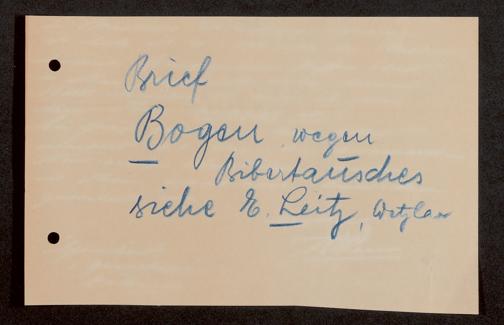 Brief
Bogen wegen
Bibertausches
siehe E. Leitz, Wetzlar